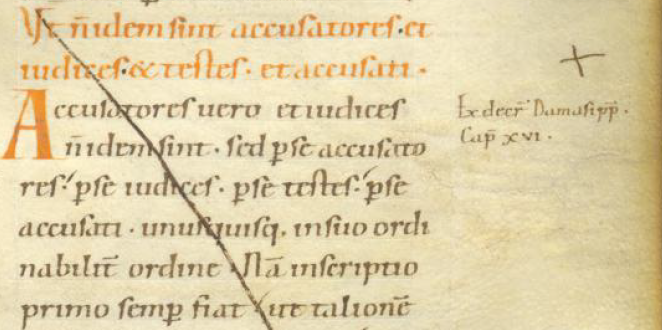 Vt n̄ idem sint accusatores· et
iudices· & testes· et accusati·
Accusatores uero et iudices
n̄ idem sint· sed ꝑ se accusato
res· ꝑ se iudices· ꝑ se testes· ꝑ se
accusati· unusquisq, in suo ordi
nabilit̄ ordine Nā inscriptio
primo semꝑ fiat ut talionē
Ex decr̄ Damasi pp̄·
Cap̄ xvi·